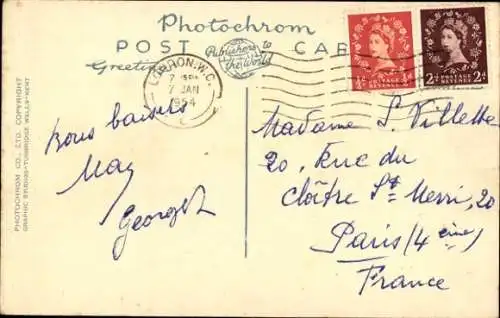 Photochrom
POST CARD
Publishers to
the World
Greetings
LONDON. W.C.
7 JAN
1954
½D
POSTAGE
REVENUE
2D POSTAGE 2D
REVENUE
PHOTOCHROM CO., LTD. COPYRIGHT
GRAPHIC STUDIOS—TUNBRIDGE WELLS—KENT
Bons baisers
May
Georges
Madame S. Villette
20, Rue du
Cloître St Merri, 20
Paris (4 ème)
France